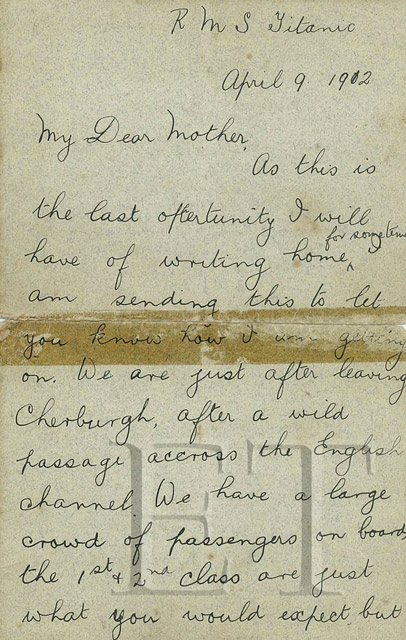 R M S Titanic
April 9 1912
My Dear Mother,
As this is
the last oftertunity I will
for sometime
have of writing home,
am sending this to let
you know how I am getting
on. We are just after leaving
Cherburgh, after a wild
passage accross the English
channel. We have a large
crowd of passengers on board,
the 1st + 2nd class are just
what you would expect but
ET